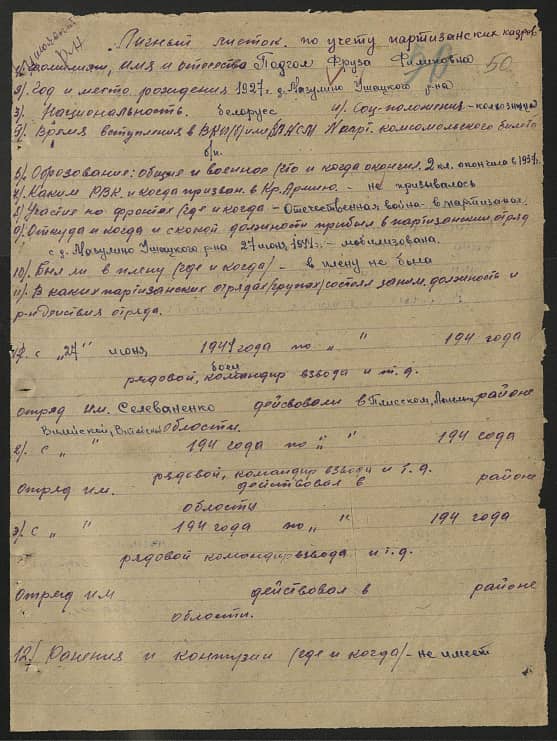 Ушачский
р-н
Личный листок по учету партизанских кадров
50
имя и отчества Подгол Фруза Филиповна
2). Год и место рождения 1927г. д. Мазулино Ушацкого р-на
3. Национальность. белорус 4). Соц. положения - колхозница
5). Время вступления в ВКП(б) или ВЛКСМ. комсомольского билета
б/н.
6). Образование: общие и военное (что и когда окончил. 2 кл. окончила в 1937г.
7). Каким РВК. и когда призван. в Кр. Армию. - не призывалась
8). Участие на фронтах (где и когда - Отечественная война - в партизанах.
9). Откуда и когда и с какой должности прибыл в партизанский отряд
с д. Мазулино Ушацкого р-на 27 июня, - мобилизована.
10). Был ли в плену (где и когда) - в плену не была
11). В каких партизанских отрядах (группах) состоял заним. должность и
р-н действия отряда.
с „27" июня, года по „ " 194 года
боец
рядовой, командир взвода и т. д.
отряд им. Селеваненко действовали в Плисском, районе
области.
2). с „ " 194 года по „ " 194 года
рядовой, командир взвода и т. д.
отряд им. действовал в районе
области
3). с „ " 194 года по „ " 194 года
рядовой командир взвода и т. д.
отряд им действовал в районе
области.
12.) Ранения и контузии (где и когда) - не имеет